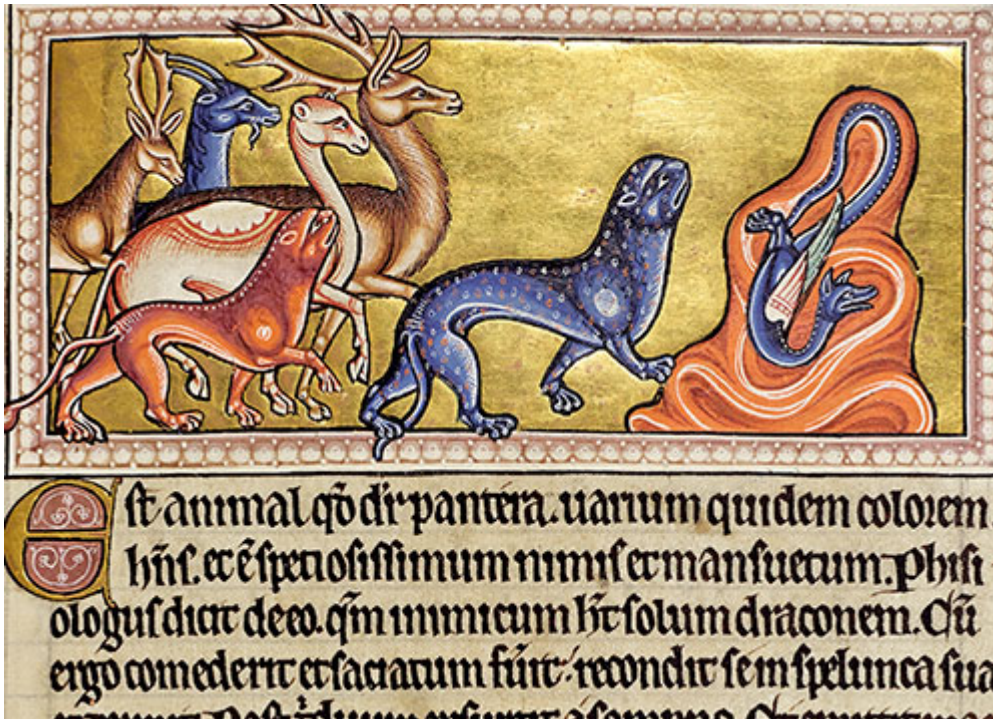 Est animal qđ dr pantera. uarium quidem colorem
hñs. et ē spetiosissimum nimis et mansuetum. Phisi
ologus dicit de eo. qm̄ inimicum ht̄ solum draconem. Cū
ergo comederit et saciatum fūit: recondit se in spelunca sua